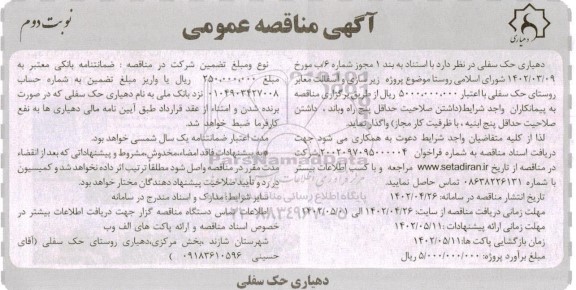 آگهی مناقصه عمومی
نوبت دوم
دهیاری
دهیاری حک سفلی در نظر دارد با استناد به بند ۱ مجوز شماره ۶/ب مورخ
۱۴۰۲/۰۳/۰۹ شورای اسلامی روستا موضوع پروژه زیر معابر
روستای حک سفلی با اعتبار ۵۰۰۰،۰۰۰،۰۰۰ ریال از طریق برگزاری مناقصه
به پیمانکاران واجد شرایط (داشتن صلاحیت حداقل پنج راه وباند ، داشتن
صلاحیت حداقل پنج ابنیه ، با ظرفیت کار مجاز) واگذار نماید
لذا از کلیه متقاضیان واجد شرایط دعوت به همکاری می شود جهت
دریافت اسناد مناقصه به شماره فراخوان ۲۰۰۲۰۹۷۰۹۵۰۰۰۰۰۴ شرکت
در مناقصه از تاریخ www.setadiran.ir مراجعه و با کسب اطلاعات بیشتر
با شماره ۰۸۶۳۸۲۲۶۱۳۱ تماس حاصل نمایید.
تاریخ انتشار مناقصه در سامانه: ۱۴۰۲/۰۴/۲۶
مهلت زمانی دریافت مناقصه از سایت: ۱۴۰۲/۰۴/۲۶ الی ۱۴۰۲/۰۵/۰۱
مهلت زمانی ارائه پیشنهادات: ۱۴۰۲/۰۵/۱۱
زمان بازگشایی پاکت ها: ۱۴۰۲/۰۵/۱۱
مبلغ برآورد پروژه: ۵/۰۰۰/۰۰۰/۰۰۰ ریال
نوع ومبلغ تضمین شرکت در مناقصه : ضمانتنامه بانکی معتبر به
مبلغ ۲۵۰،۰۰۰،۰۰۰ ریال یا واریز مبلغ تضمین به شماره حساب
۰۱۰۴۹۰۳۴۲۷۰۰۸ نزد بانک ملی به نام دهیاری حک سفلی که در صورت
برنده شدن و امتناء از عقد قرارداد طبق آیین نامه مالی دهیاری ها به نفع
کارفرما ضبط خواهد شد.
مدت اعتبار ضمانتنامه یک سال شمسی خواهد بود.
به پیشنهادات فاقد امضاء،مخدوش،مشروط و پیشنهاداتی که بعد از انقضاء
مدت مقرر در مناقصه واصل شود مطلقا ترتیب اثر داده نخواهد شد و کمیسیون
در رد و تایید صلاحیت پیشنهاد دهندگان مختار خواهد بود.
سایر شرایط مدارک و اسناد مندرج در سامانه
اطلاعات تماس دستگاه مناقصه گزار جهت دریافت اطلاعات بیشتر در
خصوص اسناد مناقصه و ارائه پاکت های الف وب
شهرستان شازند ،بخش مرکزی،دهیاری روستای حک سفلی (آقای
حسینی ۰۹۱۸۳۶۱۰۵۹۶ )
دهیاری حک سفلی
ParsNamadData